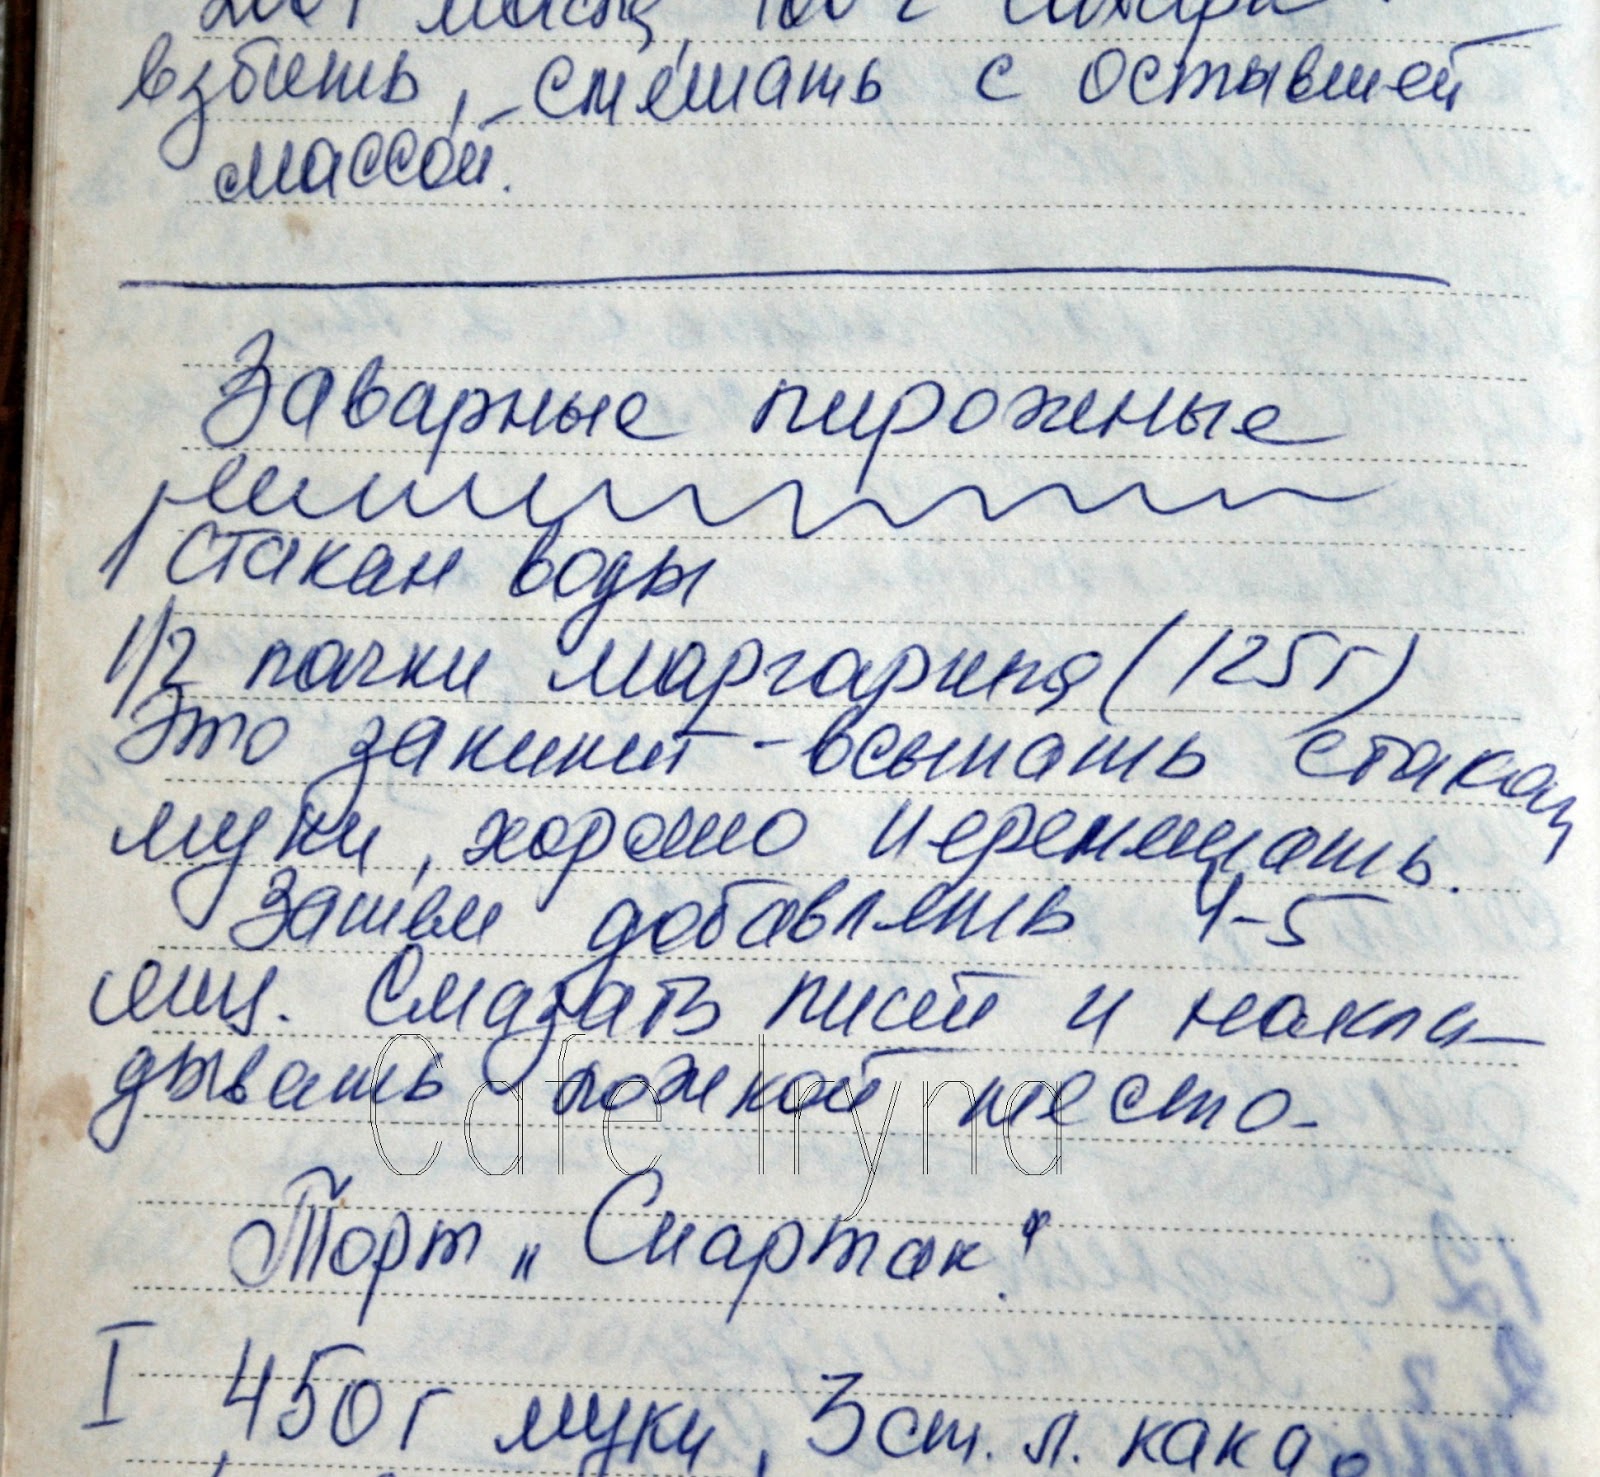 масла, 100 г сахара
взбить, смешать с остывшей
массой.
Заварные пирожные
1 стакан воды
1/2 пачки маргарина (125г)
Это закипит - всыпать стакан
муки, хорошо перемешать.
Затем добавлять 4-5
яиц. Смазать лист и накла-
дывать ложкой тесто.
Cafe Iryna
Торт „Спартак“.
I 450г муки, 3 ст. л. какао